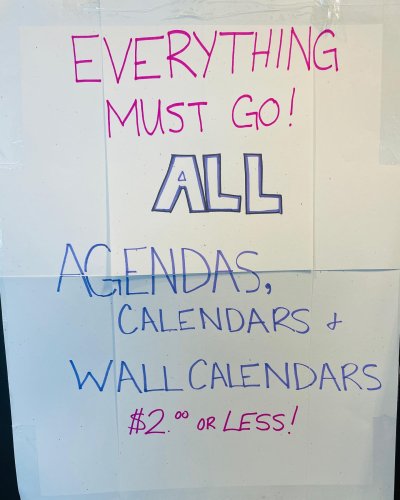 EVERYTHING
MUST GO!
ALL
AGENDAS,
CALENDARS &
WALL CALENDARS
$2.00 OR LESS!